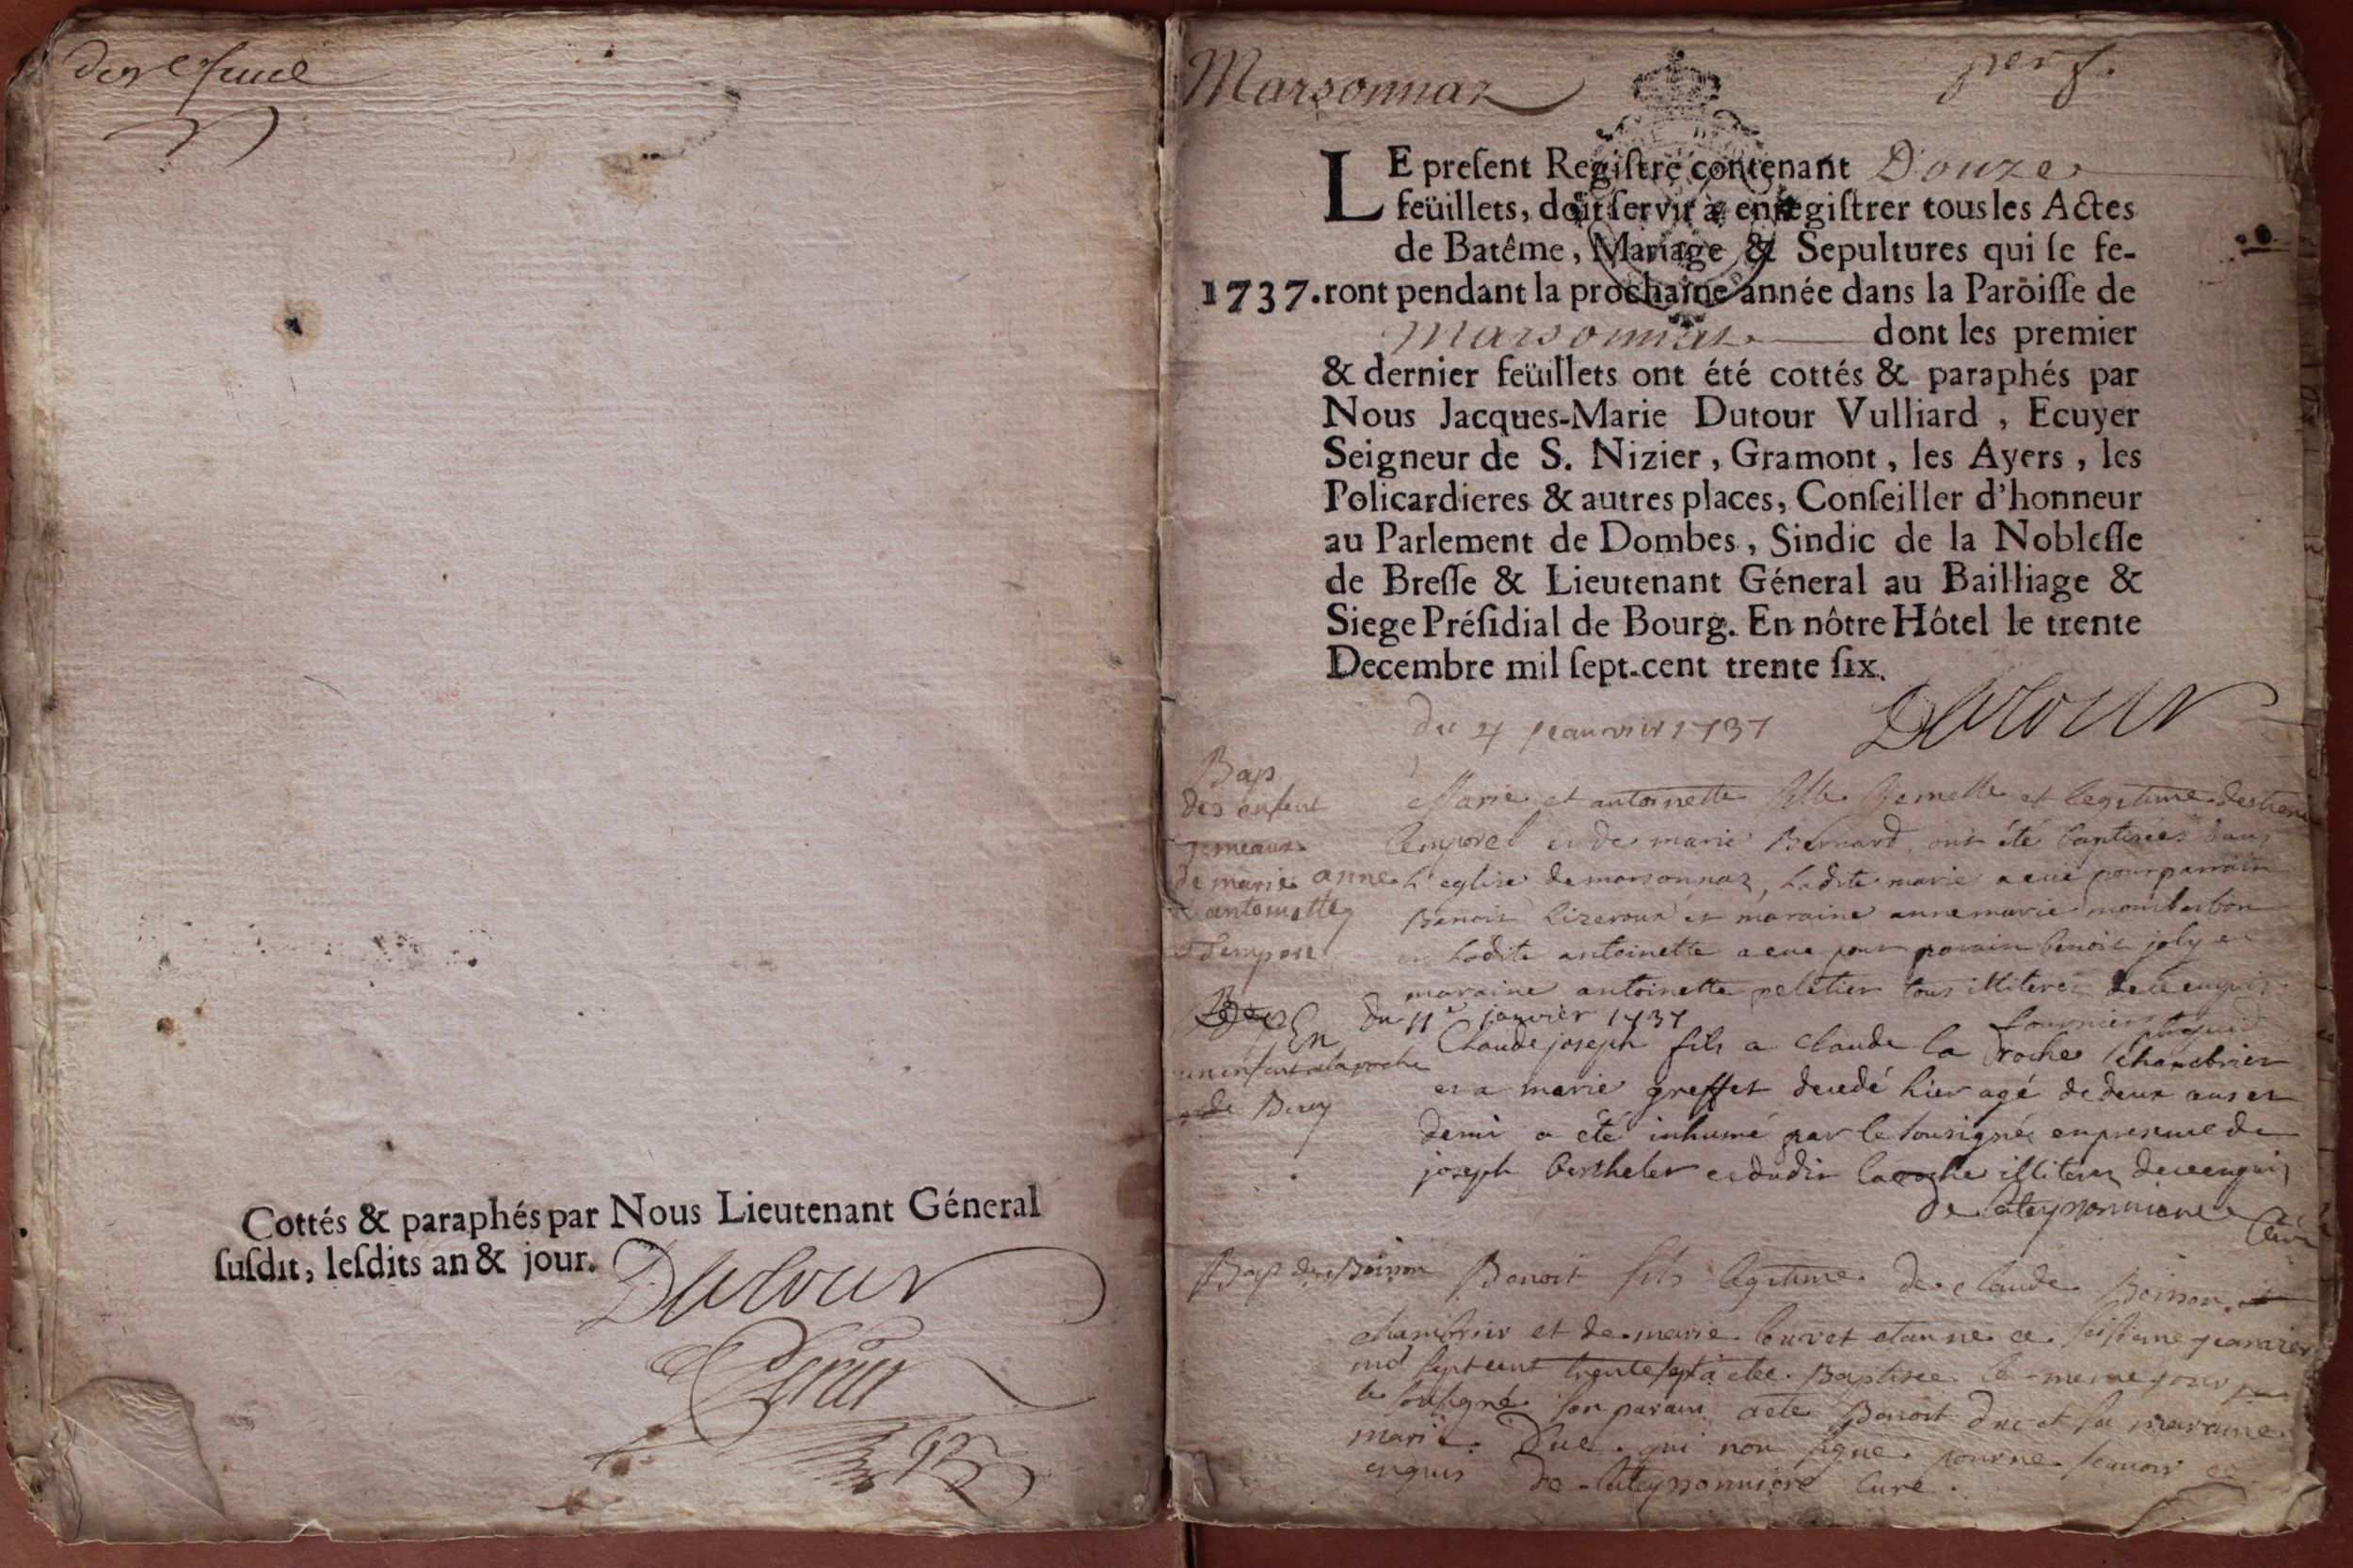 Cottés & paraphés par Nous Lieutenant Géneral
ſuſdit, leſdits an & jour. Dutour
Marsonnaz
per f.
LE preſent Regiſtre contenant Douze
feüillets, doit ſervir à enregiſtrer tous les Actes
de Batême, Mariage & Sepultures qui ſe fe-
1737. ront pendant la prochaine année dans la Paroiſſe de
Marsonnas dont les premier
& dernier feüillets ont été cottés & paraphés par
Nous Jacques-Marie Dutour Vulliard, Ecuyer
Seigneur de S. Nizier, Gramont, les Ayers, les
Policardieres & autres places, Conſeiller d'honneur
au Parlement de Dombes, Sindic de la Nobleſſe
de Breſſe & Lieutenant Géneral au Bailliage &
Siege Préſidial de Bourg. En nôtre Hôtel le trente
Decembre mil ſept-cent trente ſix.
Dutour
du 4 jeanvier 1737
Bap
des enfent
gemeaux
de marie anne
& antoinette
Marie et antoinette fille gemelle et legitime
et de marie Bernard ont été baptisées dans
l'eglise de marsonnaz, ladite marie a eue pour parrain
Benoit lizeroux et maraine anne marie
et ladite antoinette a eue pour parain benoit joly et
maraine antoinette peletier tous illiterez de ce enquis
du 11e janvier 1737
En
un enfant a la roche
Claude joseph fils a claude la roche chambrier
et a marie greffet decedé hier agé de deux ans et
demi a été inhumé par le sousigné en presence de
joseph berthelet et dudit laroche illiterez de ce enquis
de lateyssonniere Curé
Bap de Boisson
Benoit fils legitime de claude Boisson
chambrier et de marie louvet etant ne ce seisieme jeanvier
mil sept cent trente sept a eté Baptisee le meme jour par
le soussigné son parain a eté Benoit Duc et sa maraine
marie Duc qui non signe pour ne scavoir et
enquis de lateyssonniere Curé.